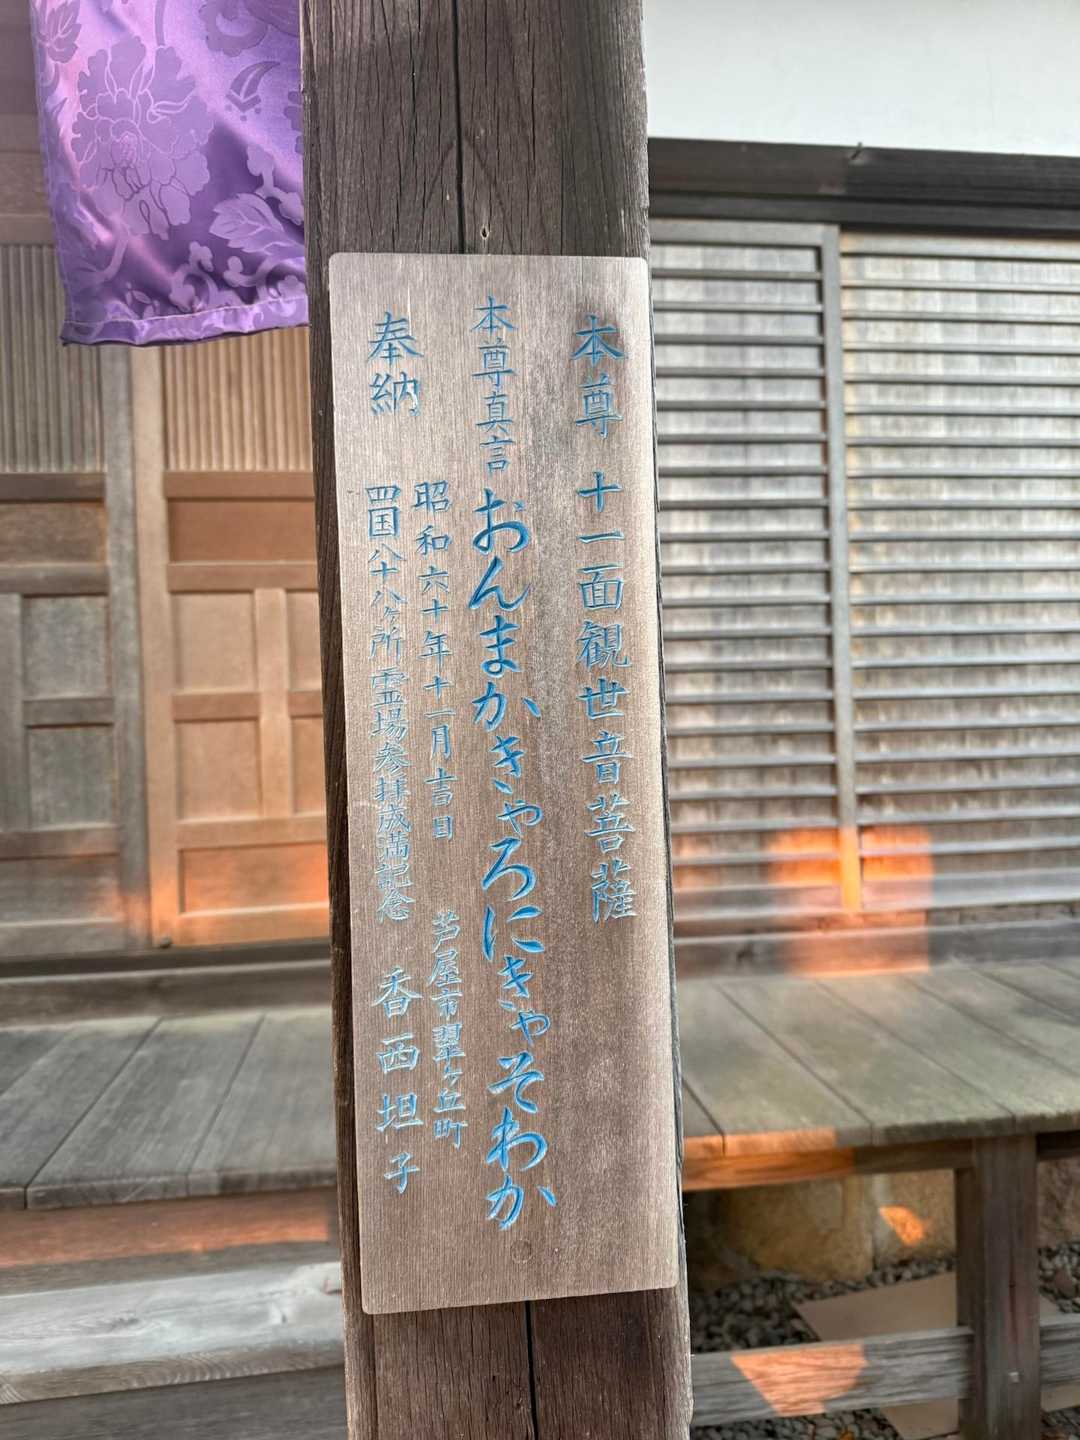 本尊 十一面観世音菩薩
本尊真言 おんまかきゃろにきゃそわか
奉納
昭和六十年十一月吉日 芦屋市翠ヶ丘町
四国八十八ヶ所霊場参拝成満記念 香西坦子